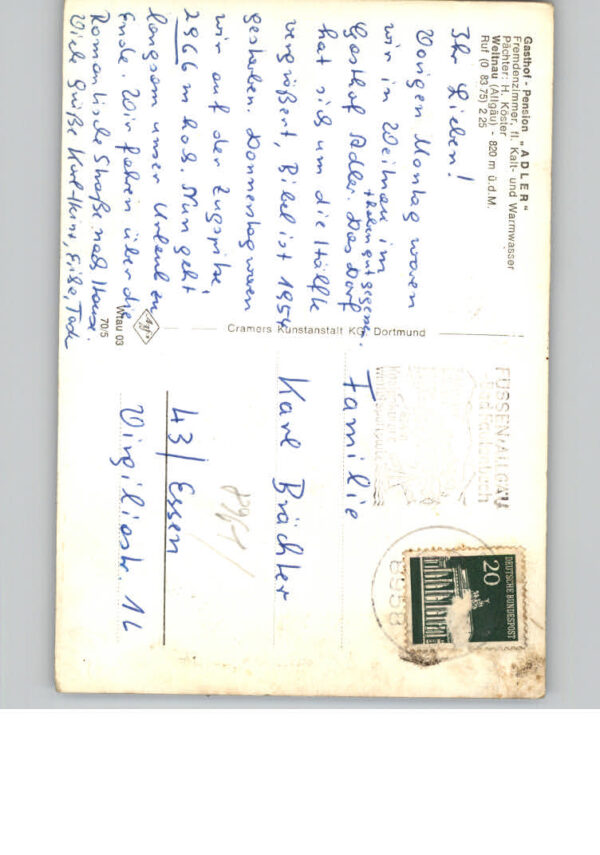 Gasthof - Pension „ADLER"
Fremdenzimmer, fl. Kalt- und Warmwasser
Pächter: H. Köster
Weitnau (Allgäu) - 820 m ü.d.M.
Ruf (0 83 75) 2 25
Ihr Lieben!
Vorigen Montag waren
wir in Weitnau im
+ haben gut gegessen.
Gasthof Adler. Das Dorf
hat sich um die Hälfte
vergrößert, Bibel ist 1954
gestorben. Donnerstag waren
wir auf der Zugspitze,
2966 m hoch. Nun geht
langsam unser Urlaub zu
Ende. Wir fahren über die
Romantische Straße nach Hause.
Viele Grüße Karl-Heinz,
Cramers Kunstanstalt KG, Dortmund
Agfa
Wtau 03
70/5
FÜSSEN/ALLGÄU
8958
20
DEUTSCHE BUNDESPOST
Familie
Karl Brächter
43/ Essen
Virgiliastr. 16